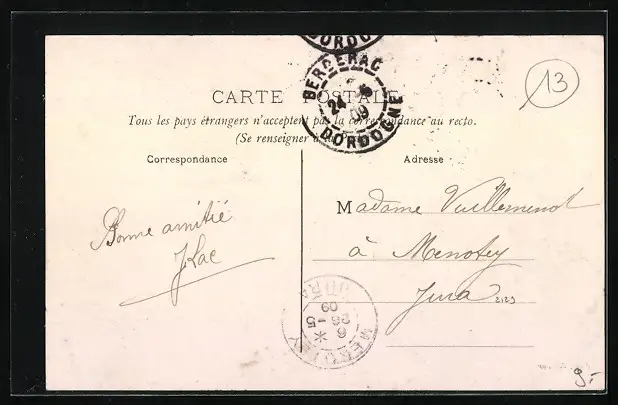 DORDOGNE
BERGERAC
24 -5
09
DORDOGNE
13
CARTE POSTALE
Tous les pays étrangers n'acceptent pas la correspondance au recto.
(Se renseigner à la
Correspondance
Adresse
Bonne amitié
Madame Vuillemenot
à Menotey
Jura
MENOTEY
JURA
6
26 -5
09
9.-